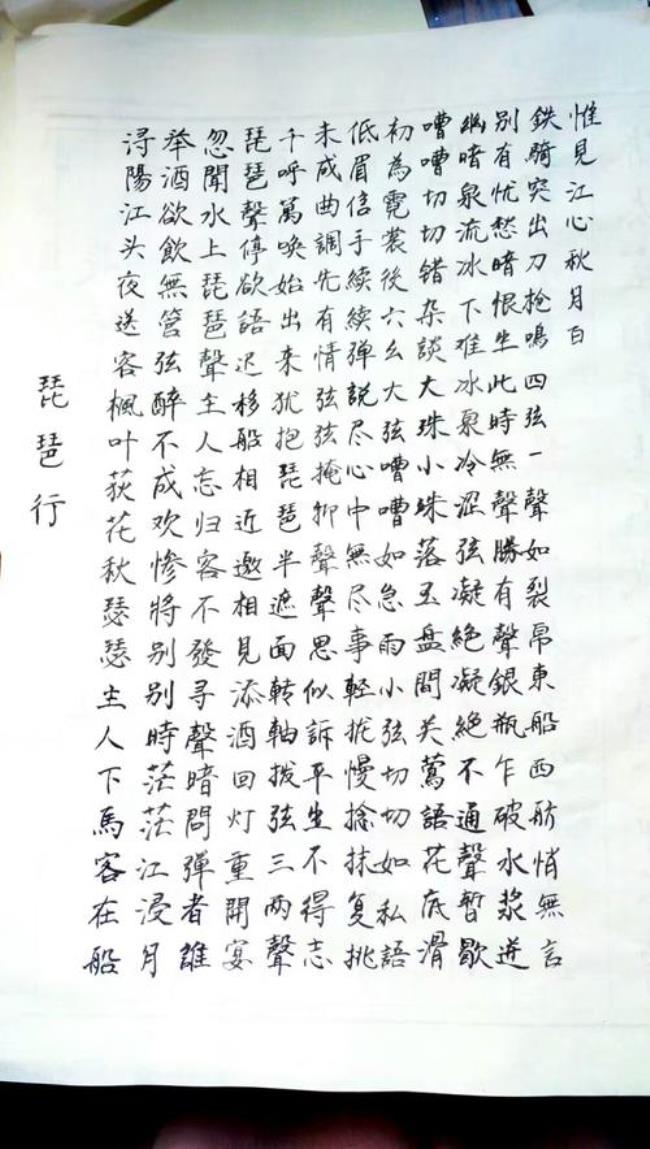 琵琶行
浔陽江头夜送客楓叶荻花秋瑟瑟主人下馬客在船
举酒欲飲無管弦醉不成欢惨将别别時茫茫江浸月
忽聞水上琵琶聲主人忘归客不發寻聲暗問弹者誰
琵琶聲停欲語迟移船相近邀相見添酒回灯重開宴
千呼萬唤始出来犹抱琵琶半遮面转軸拨弦三两聲
未成曲調先有情弦弦掩抑聲聲思似訴平生不得志
低眉信手續續弹説尽心中無尽事軽拢慢捻抹复挑
初為霓裳後六幺大弦嘈嘈如急雨小弦切切如私語
嘈嘈切切错杂談大珠小珠落玉盘間关莺語花底滑
幽暗泉流冰下难冰泉冷澀弦凝絶凝絶不通聲暫歇
别有忧愁暗恨生此時無聲勝有聲銀瓶乍破水浆迸
鉄騎突出刀枪鳴四弦一聲如裂帛東船西舫悄無言
惟見江心秋月白